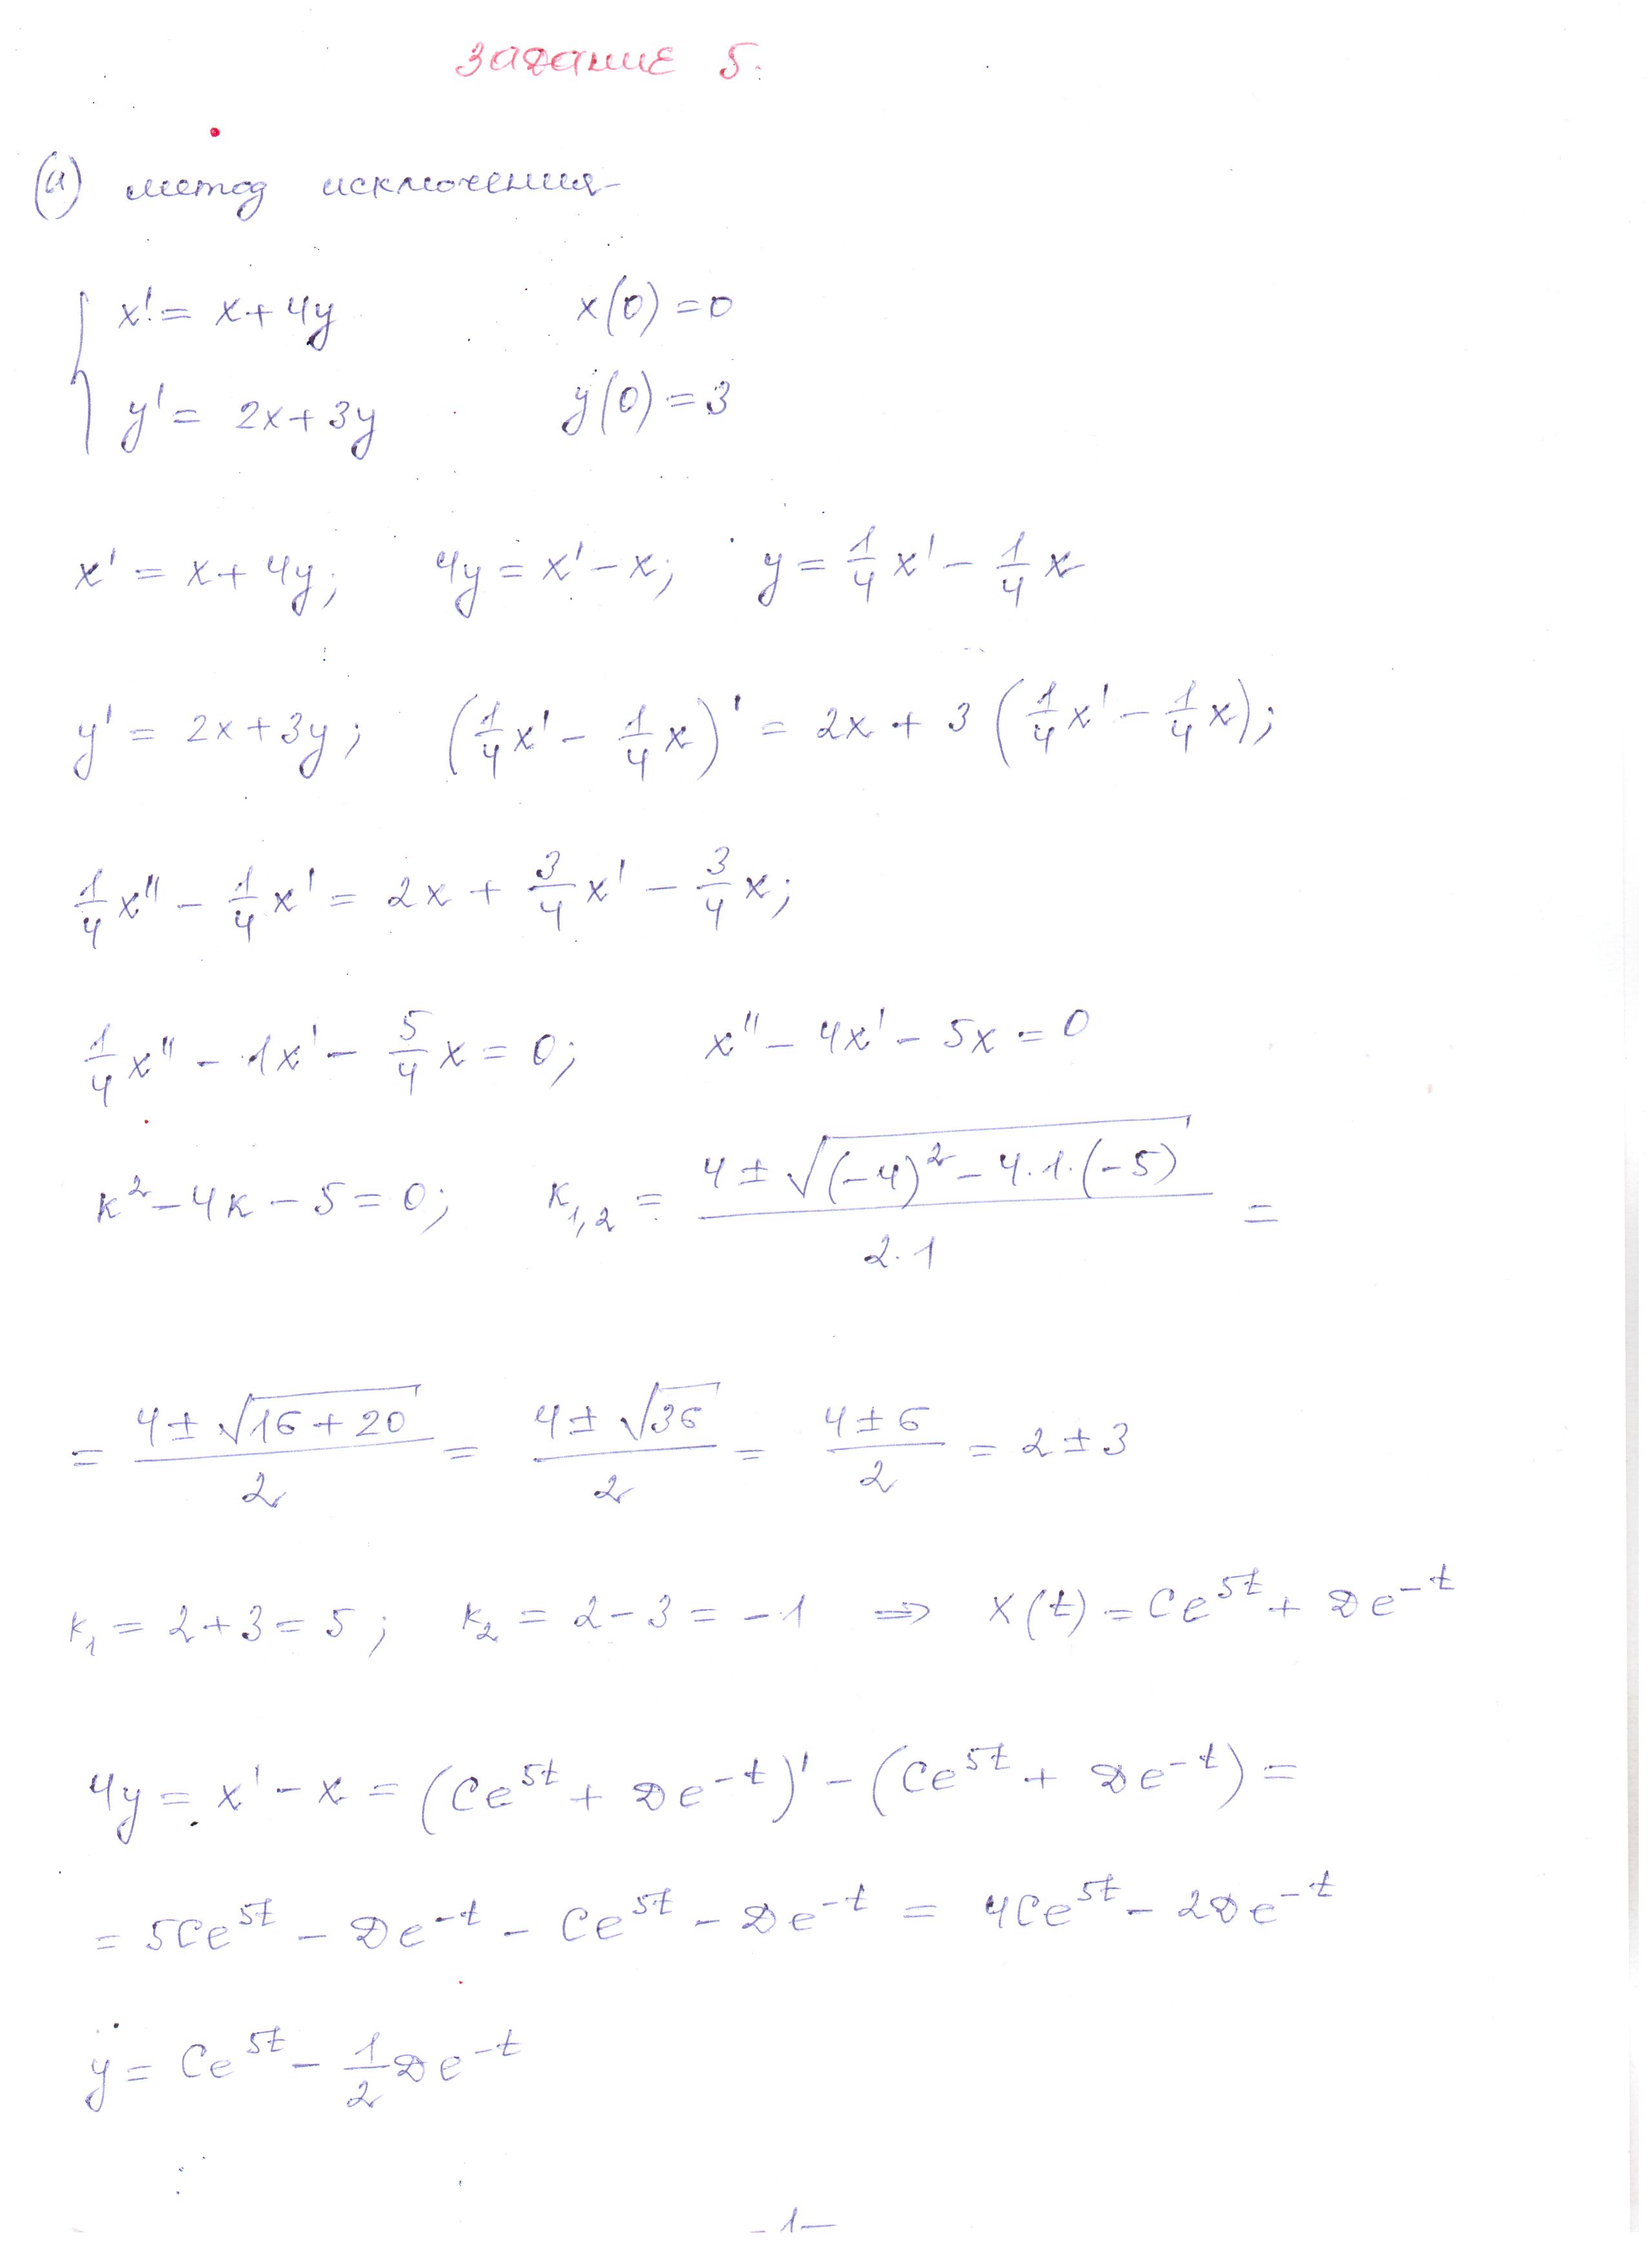 задание 5.
(а) метод исключения
{ x' = x + 4y    x(0) = 0
y' = 2x + 3y    y(0) = 3
x' = x + 4y;    4y = x' - x;    y = 1/4 x' - 1/4 x
y' = 2x + 3y;    (1/4 x' - 1/4 x)' = 2x + 3 (1/4 x' - 1/4 x);
1/4 x'' - 1/4 x' = 2x + 3/4 x' - 3/4 x;
1/4 x'' - 1x' - 5/4 x = 0;    x'' - 4x' - 5x = 0
к² - 4к - 5 = 0;    к₁,₂ = (4 ± √((-4)² - 4·1·(-5))) / (2·1) =
= (4 ± √(16 + 20)) / 2 = (4 ± √36) / 2 = (4 ± 6) / 2 = 2 ± 3
к₁ = 2 + 3 = 5;    к₂ = 2 - 3 = -1 ⇒ x(t) = Ce^(5t) + De^(-t)
4y = x' - x = (Ce^(5t) + De^(-t))' - (Ce^(5t) + De^(-t)) =
= 5Ce^(5t) - De^(-t) - Ce^(5t) - De^(-t) = 4Ce^(5t) - 2De^(-t)
y = Ce^(5t) - 1/2 De^(-t)
- 1 -